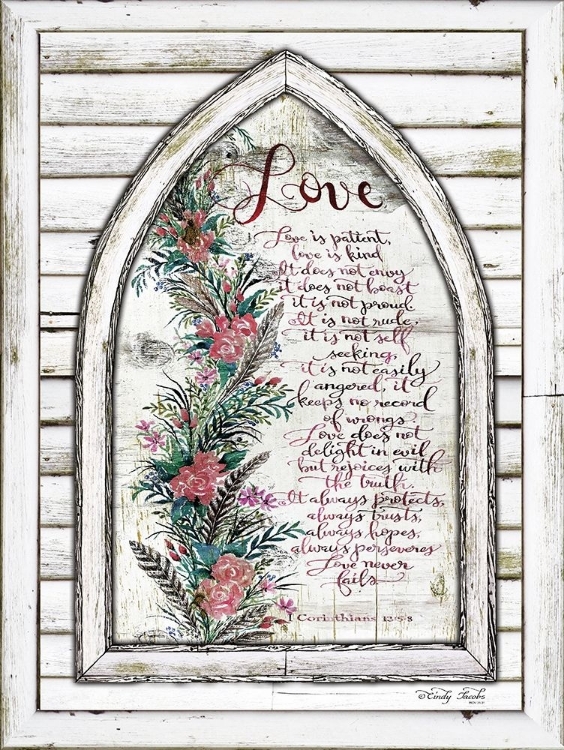 Love
Love is patient,
love is kind
It does not envy
it does not boast
it is not proud
It is not rude,
it is not self
seeking,
it is not easily
angered, it
keeps no record
of wrongs
Love does not
delight in evil
but rejoices with
the truth.
It always protects,
always trusts,
always hopes,
always perseveres
Love never
fails
1 Corinthians 13:5-8
©Cindy Jacobs